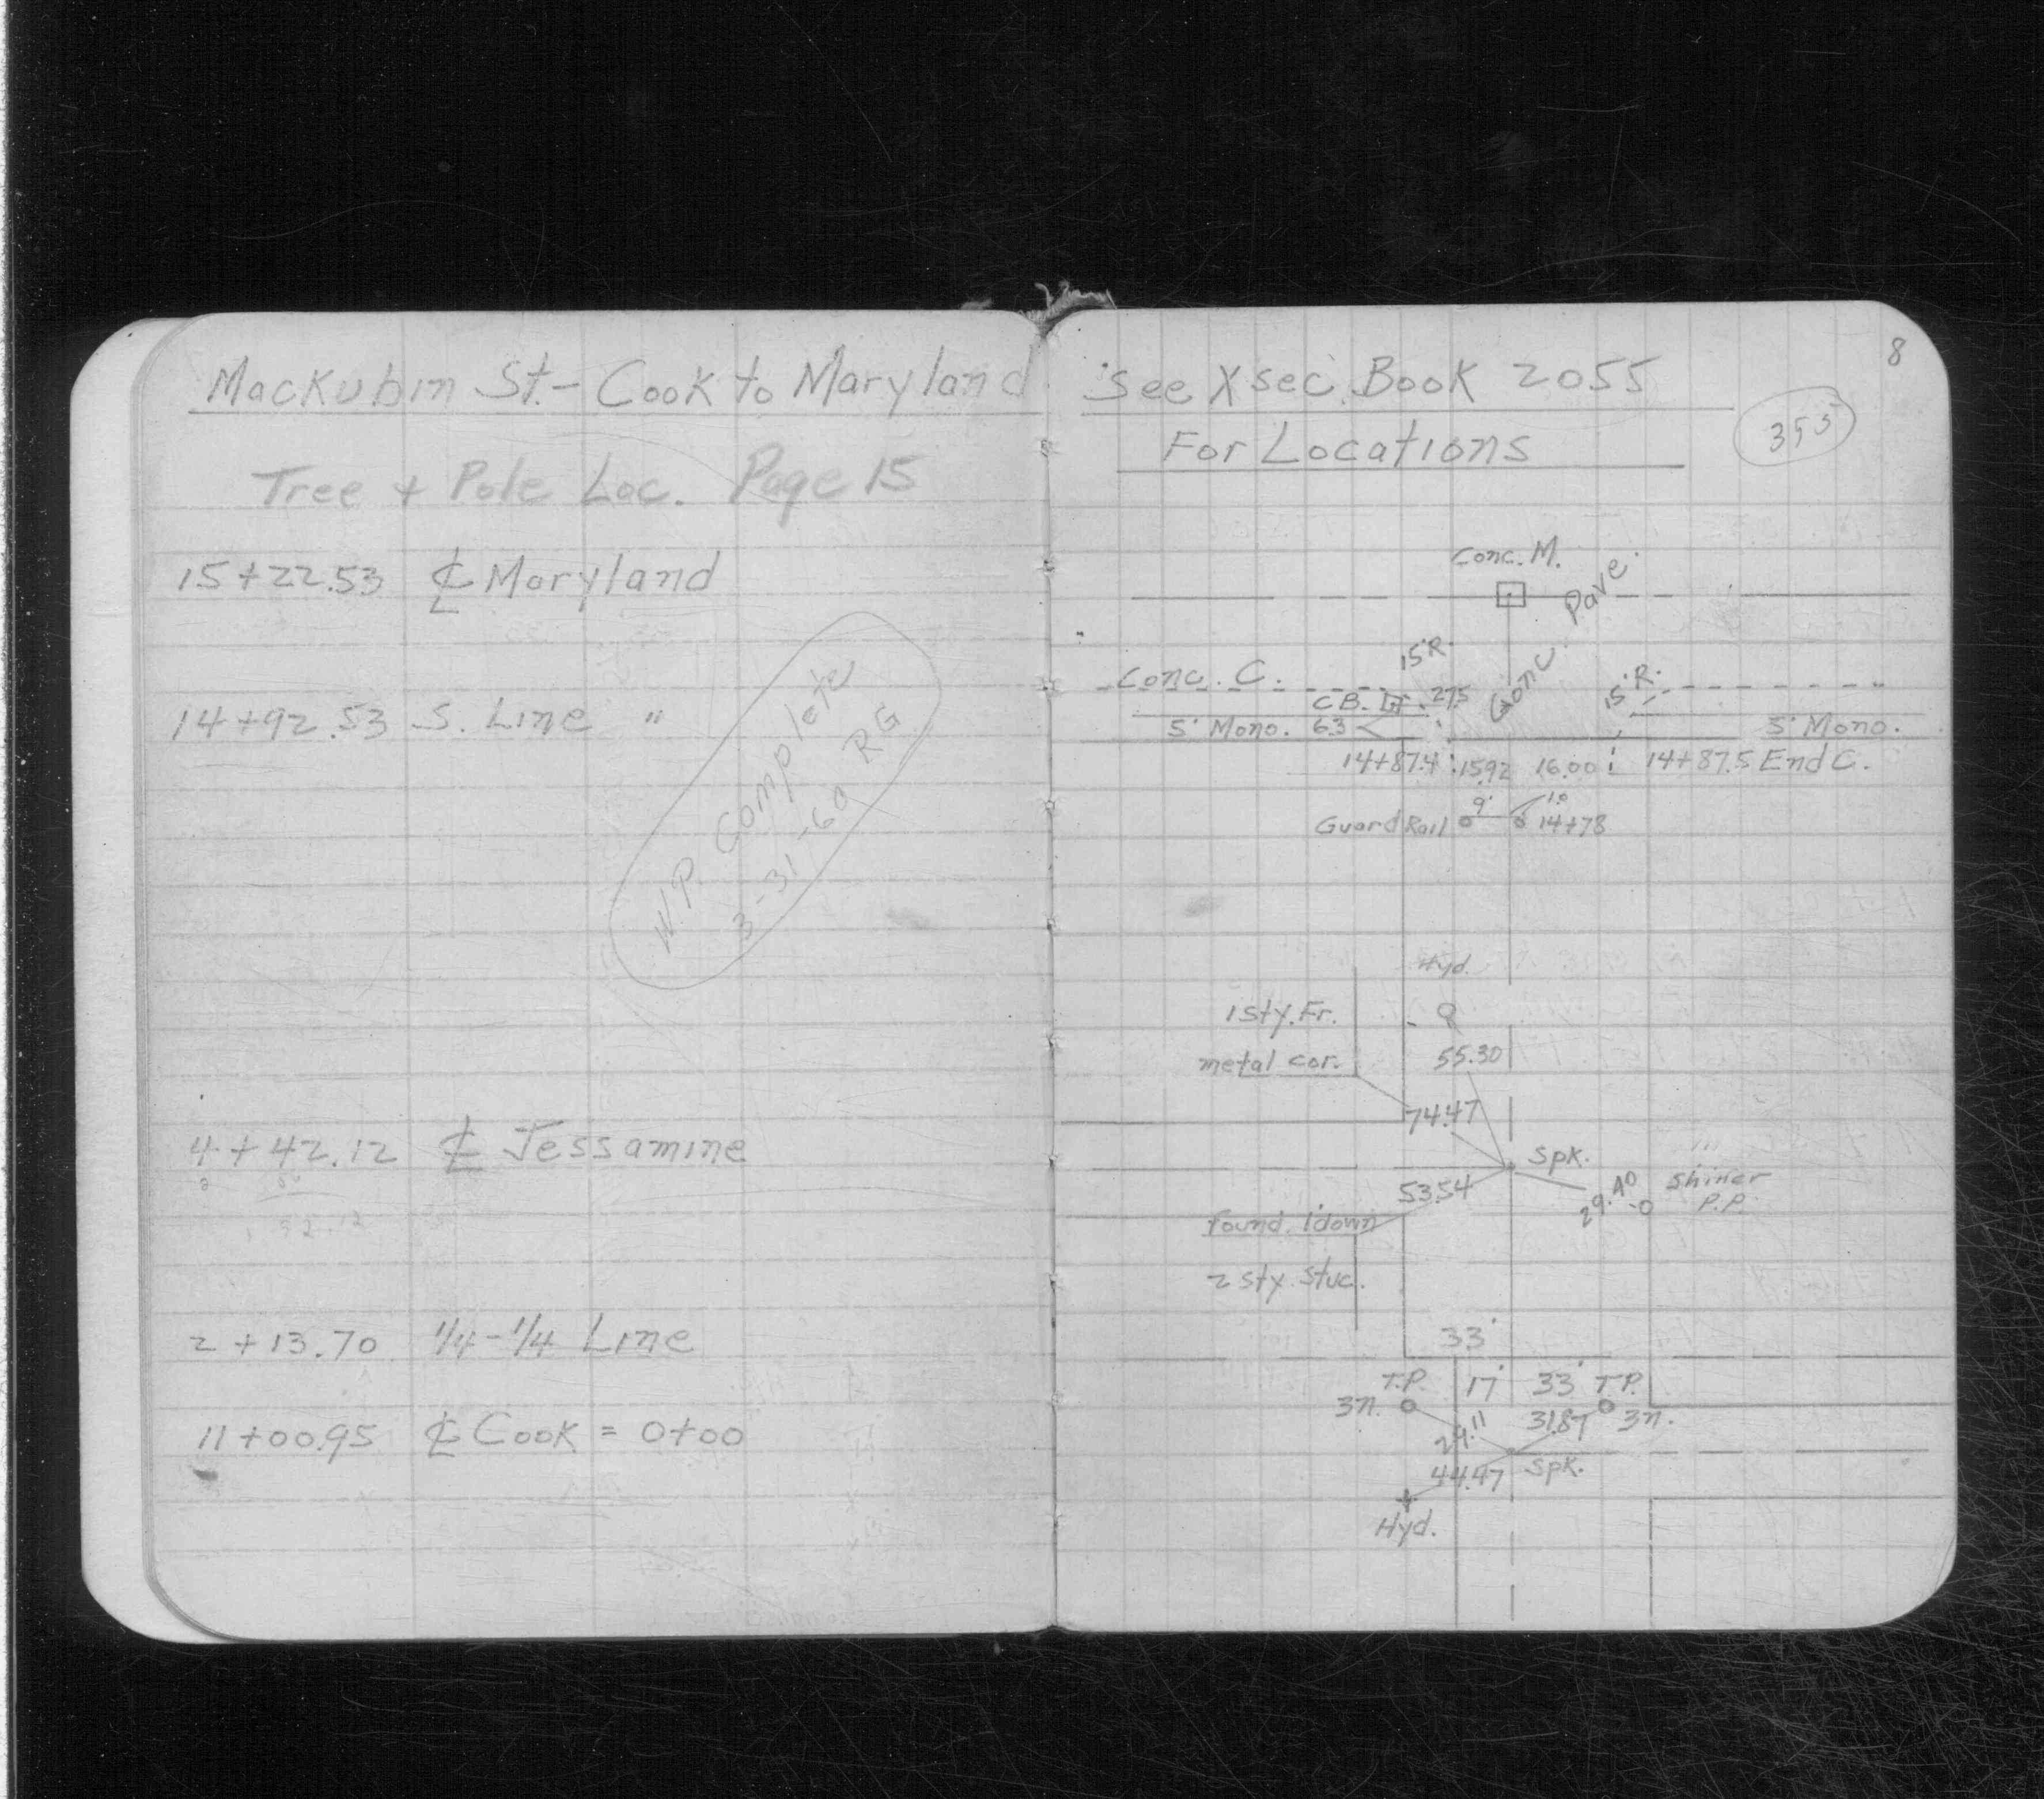 Mackubin St. - Cook to Maryland
Tree + Pole Loc. Page 15
15+22.53 ℄ Maryland
14+92.53 S. Line "
W.P. Complete
3-31-60 RG
4+42.12 ℄ Jessamine
2+13.70 1/4-1/4 Line
11+00.95 ℄ Cook = 0+00
8
See Xsec. Book 2055
355
For Locations
Conc. M.
Conc. Pave.
15'R.
Conc. C.
15'R.
C.B. 27.5
5' Mono. 6.3
5' Mono.
14+87.4 15.92 16.00 14+87.5 End C.
9' 1.0
Guard Rail 14+78
Hyd.
1 sty. Fr.
metal cor. 55.30
74.47
Spk.
53.54 29.40 Shiner
P.P.
found. 1'down
2 sty. stuc.
33'
T.P. 17' 33' T.P.
3n. 29.11 31.87 3n.
44.47 Spk.
Hyd.